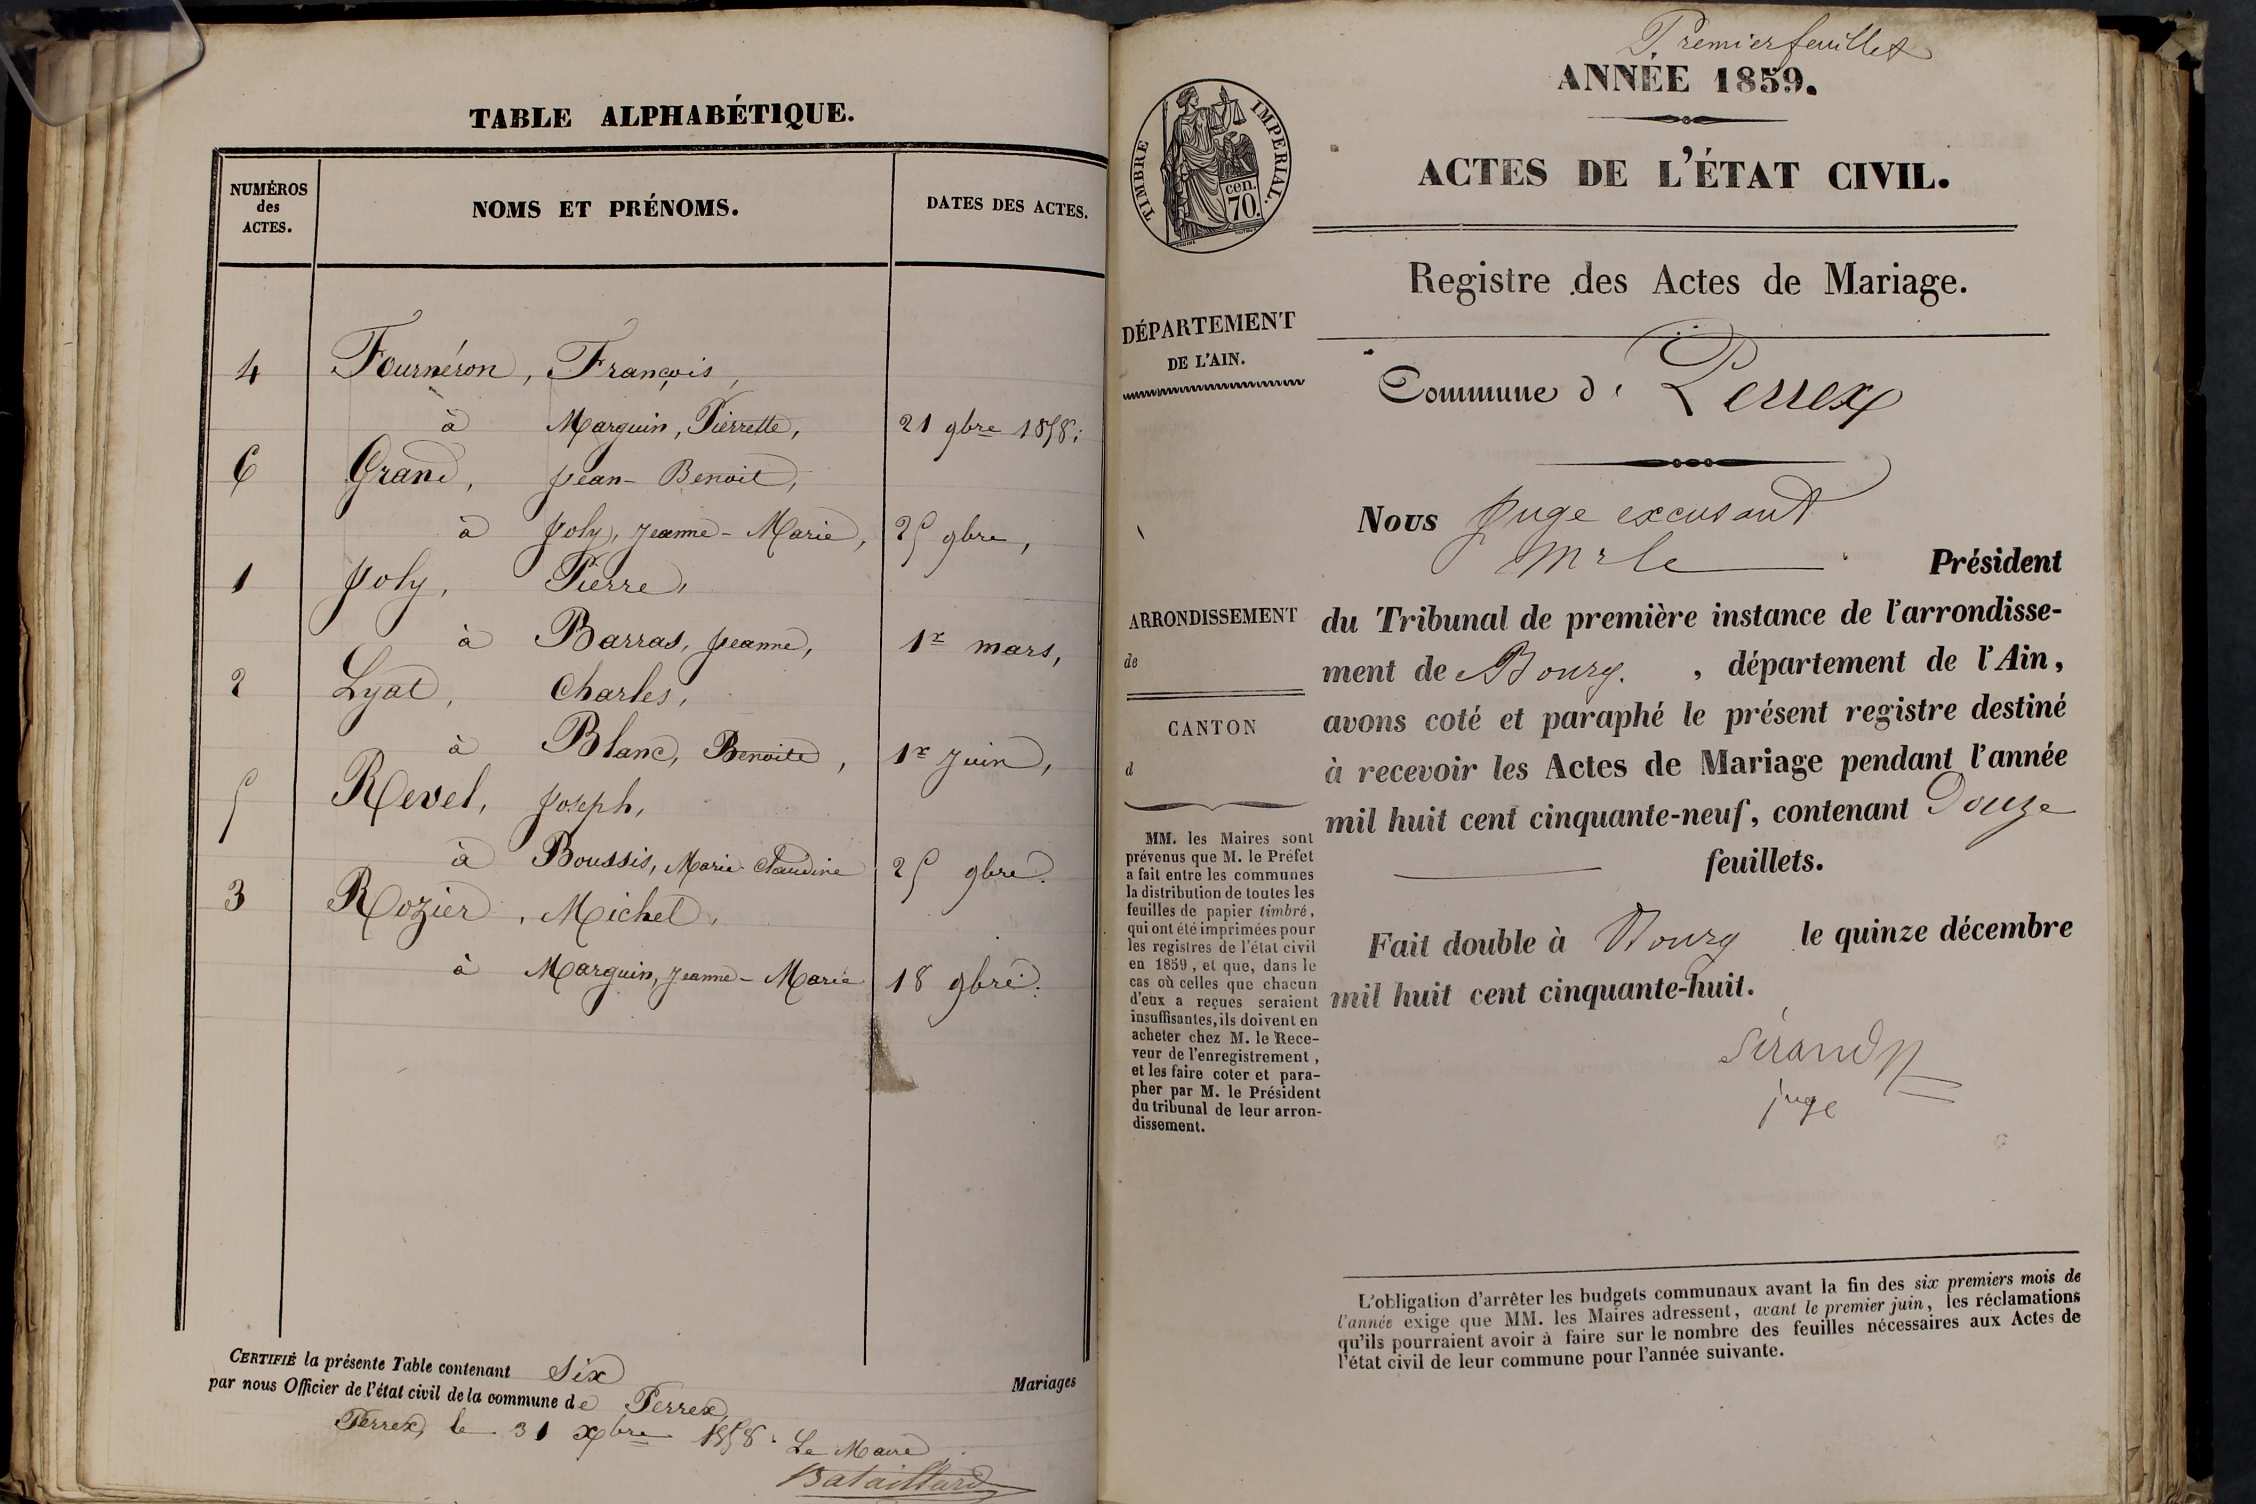 TABLE ALPHABÉTIQUE.
NUMÉROS
des
ACTES.
NOMS ET PRÉNOMS.
DATES DES ACTES.
4 Fournéron, François,
à Marguin, Pierrette, 21 9bre 1858.
6 Grand, Jean-Benoit,
à Joly, Jeanne-Marie, 25 9bre,
1 Joly, Pierre,
à Barras, Jeanne, 1r mars,
2 Lyat, Charles,
à Blanc, Benoite, 1r Juin,
5 Revel, Joseph,
à Boussis, Marie Claudine 25 9bre.
3 Rozier, Michel,
à Marguin, Jeanne-Marie 18 9bre.
CERTIFIÉ la présente Table contenant Six Mariages
par nous Officier de l'état civil de la commune de Perrex
Perrex, le 31 Xbre 1858.
Le Maire
Bataillard
Premier feuillet
ANNÉE 1859.
TIMBRE IMPERIAL.
cen.
70.
ACTES DE L'ÉTAT CIVIL.
Registre des Actes de Mariage.
DÉPARTEMENT
DE L'AIN.
Commune d Perrex
Nous Juge excusant
Mr le Président
du Tribunal de première instance de l'arrondisse-
ment de Bourg. , département de l'Ain,
avons coté et paraphé le présent registre destiné
à recevoir les Actes de Mariage pendant l'année
mil huit cent cinquante-neuf, contenant Douze
feuillets.
Fait double à Bourg le quinze décembre
mil huit cent cinquante-huit.
Sirand
juge
ARRONDISSEMENT
de
CANTON
d
MM. les Maires sont
prévenus que M. le Préfet
a fait entre les communes
la distribution de toutes les
feuilles de papier timbré,
qui ont été imprimées pour
les registres de l'état civil
en 1859, et que, dans le
cas où celles que chacun
d'eux a reçues seraient
insuffisantes, ils doivent en
acheter chez M. le Rece-
veur de l'enregistrement,
et les faire coter et para-
pher par M. le Président
du tribunal de leur arron-
dissement.
L'obligation d'arrêter les budgets communaux avant la fin des six premiers mois de
l'année exige que MM. les Maires adressent, avant le premier juin, les réclamations
qu'ils pourraient avoir à faire sur le nombre des feuilles nécessaires aux Actes de
l'état civil de leur commune pour l'année suivante.